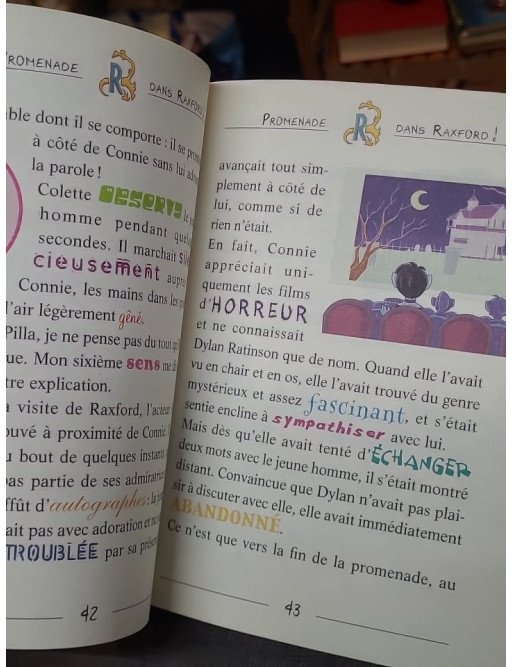 PROMENADE
R
DANS RAXFORD!
dont il se comporte : il se
à côté de Connie sans lui
la parole !
Colette OBSERVA le
homme pendant
secondes. Il marchait
cieusement
Connie, les mains dans les
l'air légèrement gêné.
Pilla, je ne pense pas du tout
Mon sixième sens me
explication.
visite de Raxford, l'acteur
à proximité de Connie.
bout de quelques instants
pas partie de ses admiratrices
d'autographes : la
pas avec adoration et ne
TROUBLÉE par sa
42
PROMENADE
R
DANS RAXFORD !
avançait tout sim-
plement à côté de
lui, comme si de
rien n'était.
En fait, Connie
appréciait uni-
quement les films
d'HORREUR
et ne connaissait
Dylan Ratinson que de nom. Quand elle l'avait
vu en chair et en os, elle l'avait trouvé du genre
mystérieux et assez fascinant, et s'était
sentie encline à sympathiser avec lui.
Mais dès qu'elle avait tenté d'ÉCHANGER
deux mots avec le jeune homme, il s'était montré
distant. Convaincue que Dylan n'avait pas plai-
sir à discuter avec elle, elle avait immédiatement
ABANDONNÉ.
Ce n'est que vers la fin de la promenade, au
43